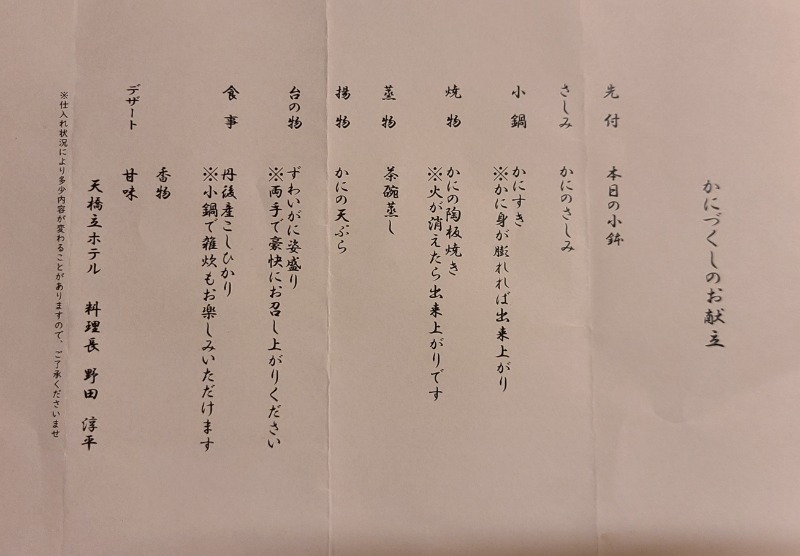 かにづくしのお献立
先付　本日の小鉢
さしみ　かにのさしみ
小鍋　かにすき
※かに身が膨れれば出来上がり
焼物　かにの陶板焼き
※火が消えたら出来上がりです
蒸物　茶碗蒸し
揚物　かにの天ぷら
台の物　ずわいがに姿盛り
※両手で豪快にお召し上がりください
食事　丹後産こしひかり
※小鍋で雑炊もお楽しみいただけます
香物
デザート　甘味
天橋立ホテル　料理長　野田　淳平
※仕入れ状況により多少内容が変わることがありますので、ご了承くださいませ